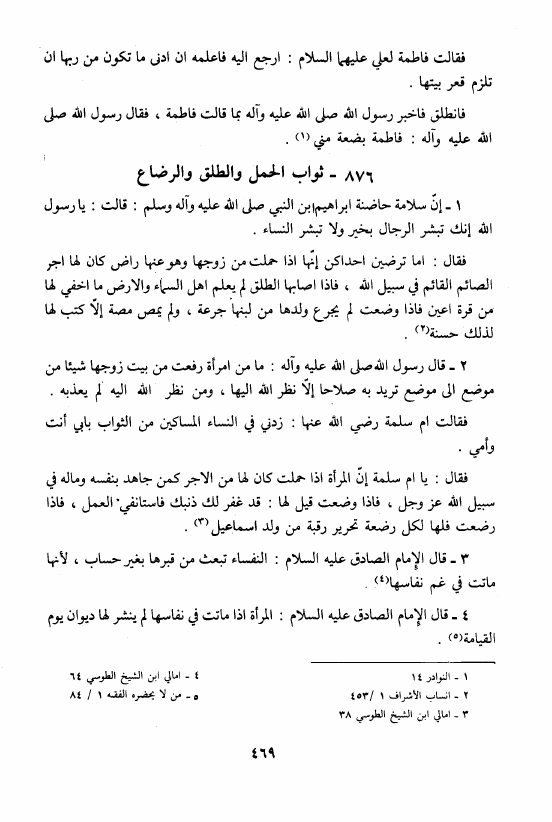 فقالت فاطمة لعلي عليهما السلام : ارجع اليه فاعلمه ان ادنى ما تكون من ربها ان
تلزم قعر بيتها .
فانطلق فاخبر رسول الله صلى الله عليه وآله بما قالت فاطمة ، فقال رسول الله صلى
الله عليه وآله : فاطمة بضعة مني (١) .
٨٧٦ - ثواب الحمل والطلق والرضاع
١ - إنّ سلامة حاضنة ابراهيم ابن النبي صلى الله عليه وآله وسلم : قالت : يا رسول
الله إنك تبشر الرجال بخير ولا تبشر النساء .
فقال : اما ترضين احداكن إنّها اذا حملت من زوجها وهو عنها راض كان لها اجر
الصائم القائم في سبيل الله ، فاذا اصابها الطلق لم يعلم اهل السماء والارض ما اخفي لها
من قرة اعين فاذا وضعت لم يجرع ولدها من لبنها جرعة ، ولم يمص مصة إلّا كتب لها
لذلك حسنة(٢) .
٢ - قال رسول الله صلى الله عليه وآله : ما من امرأة رفعت من بيت زوجها شيئا من
موضع الى موضع تريد به صلاحا إلّا نظر الله اليها ، ومن نظر الله اليه لم يعذبه .
فقالت ام سلمة رضي الله عنها : زدني في النساء المساكين من الثواب بابي أنت
وأمي .
فقال : يا ام سلمة إنّ المرأة اذا حملت كان لها من الاجر كمن جاهد بنفسه وماله في
سبيل الله عز وجل ، فاذا وضعت قيل لها : قد غفر لك ذنبك فاستانفي العمل ، فاذا
رضعت فلها لكل رضعة تحرير رقبة من ولد اسماعيل(٣) .
٣ - قال الإمام الصادق عليه السلام : النفساء تبعث من قبرها بغير حساب ، لأنها
ماتت في غم نفاسها(٤) .
٤ - قال الإمام الصادق عليه السلام : المرأة اذا ماتت في نفاسها لم ينشر لها ديوان يوم
القيامة(٥) .
١ - النوادر ١٤
٢ - انساب الأشراف ١ /٤٥٣
٣ - امالي ابن الشيخ الطوسي ٣٨
٤ - امالي ابن الشيخ الطوسي ٦٤
٥ - من لا يحضره الفقه ١ / ٨٤
٤٦٩